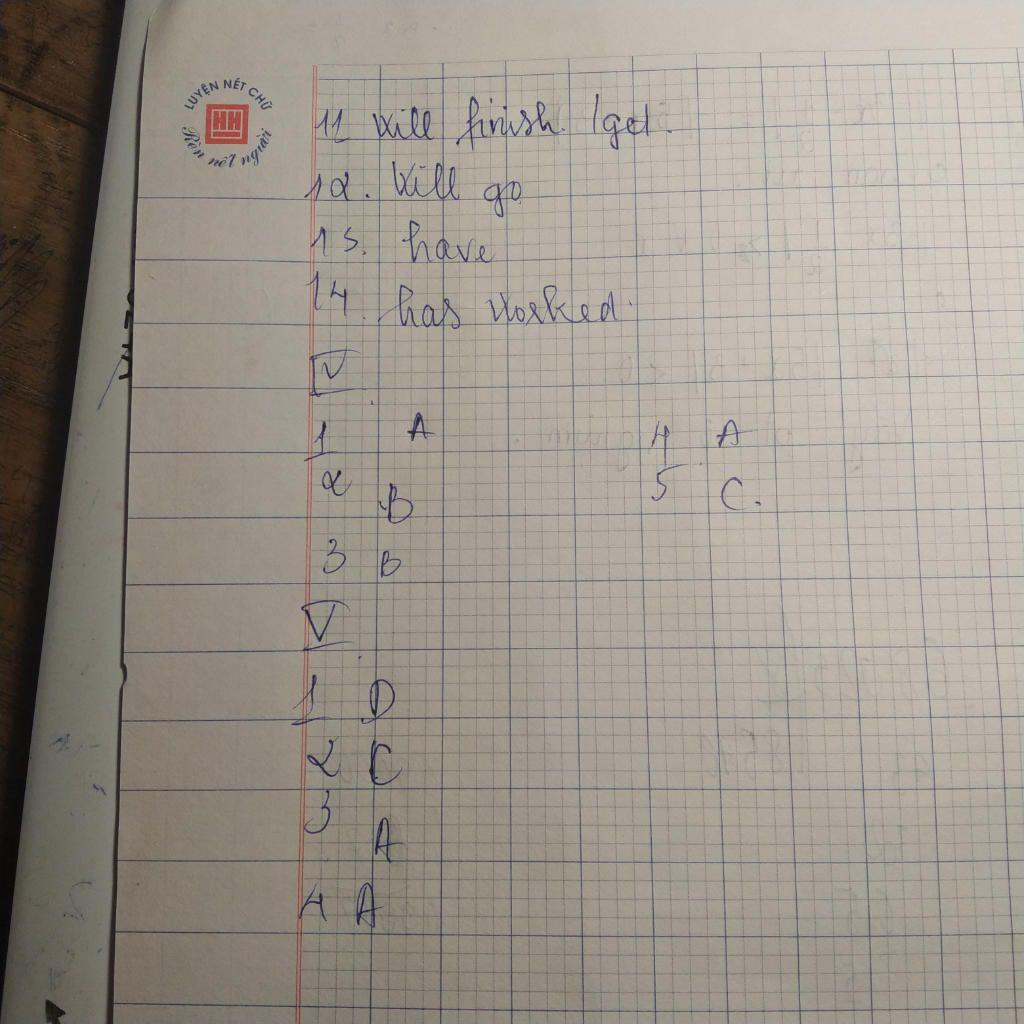 LUYỆN NÉT CHỮ
HH
Rèn nết người
11 Will finish. /get.
12. Will go
13. have
14. has worked.
IV.
1 A 4 A
2 B 5 C.
3 B
V.
1 D
2 C
3 A
4 A